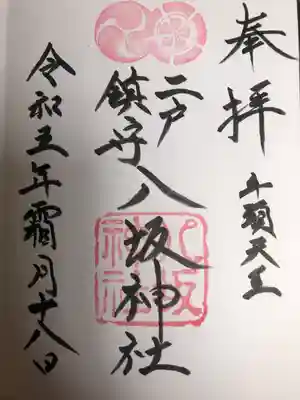 奉拝
牛頭天王
二戸
鎮守八坂神社
八坂
神社
令和五年霜月十八日